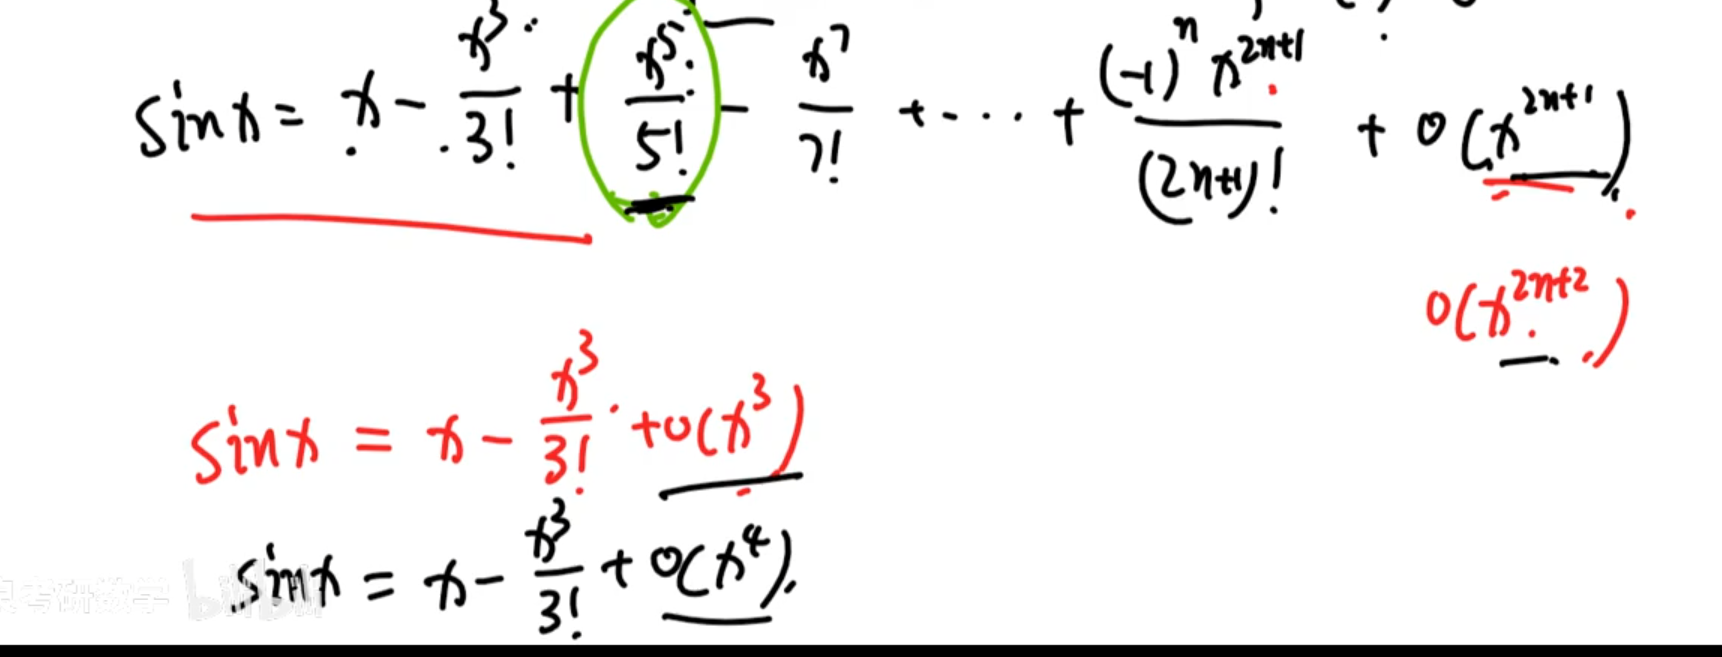 sinx = x - x³/3! + x⁵/5! - x⁷/7! + ... + (-1)ⁿ x²ⁿ⁺¹/(2n+1)! + o(x²ⁿ⁺¹)
o(x²ⁿ⁺²)
sinx = x - x³/3! + o(x³)
sinx = x - x³/3! + o(x⁴).
考研数学 bilibili